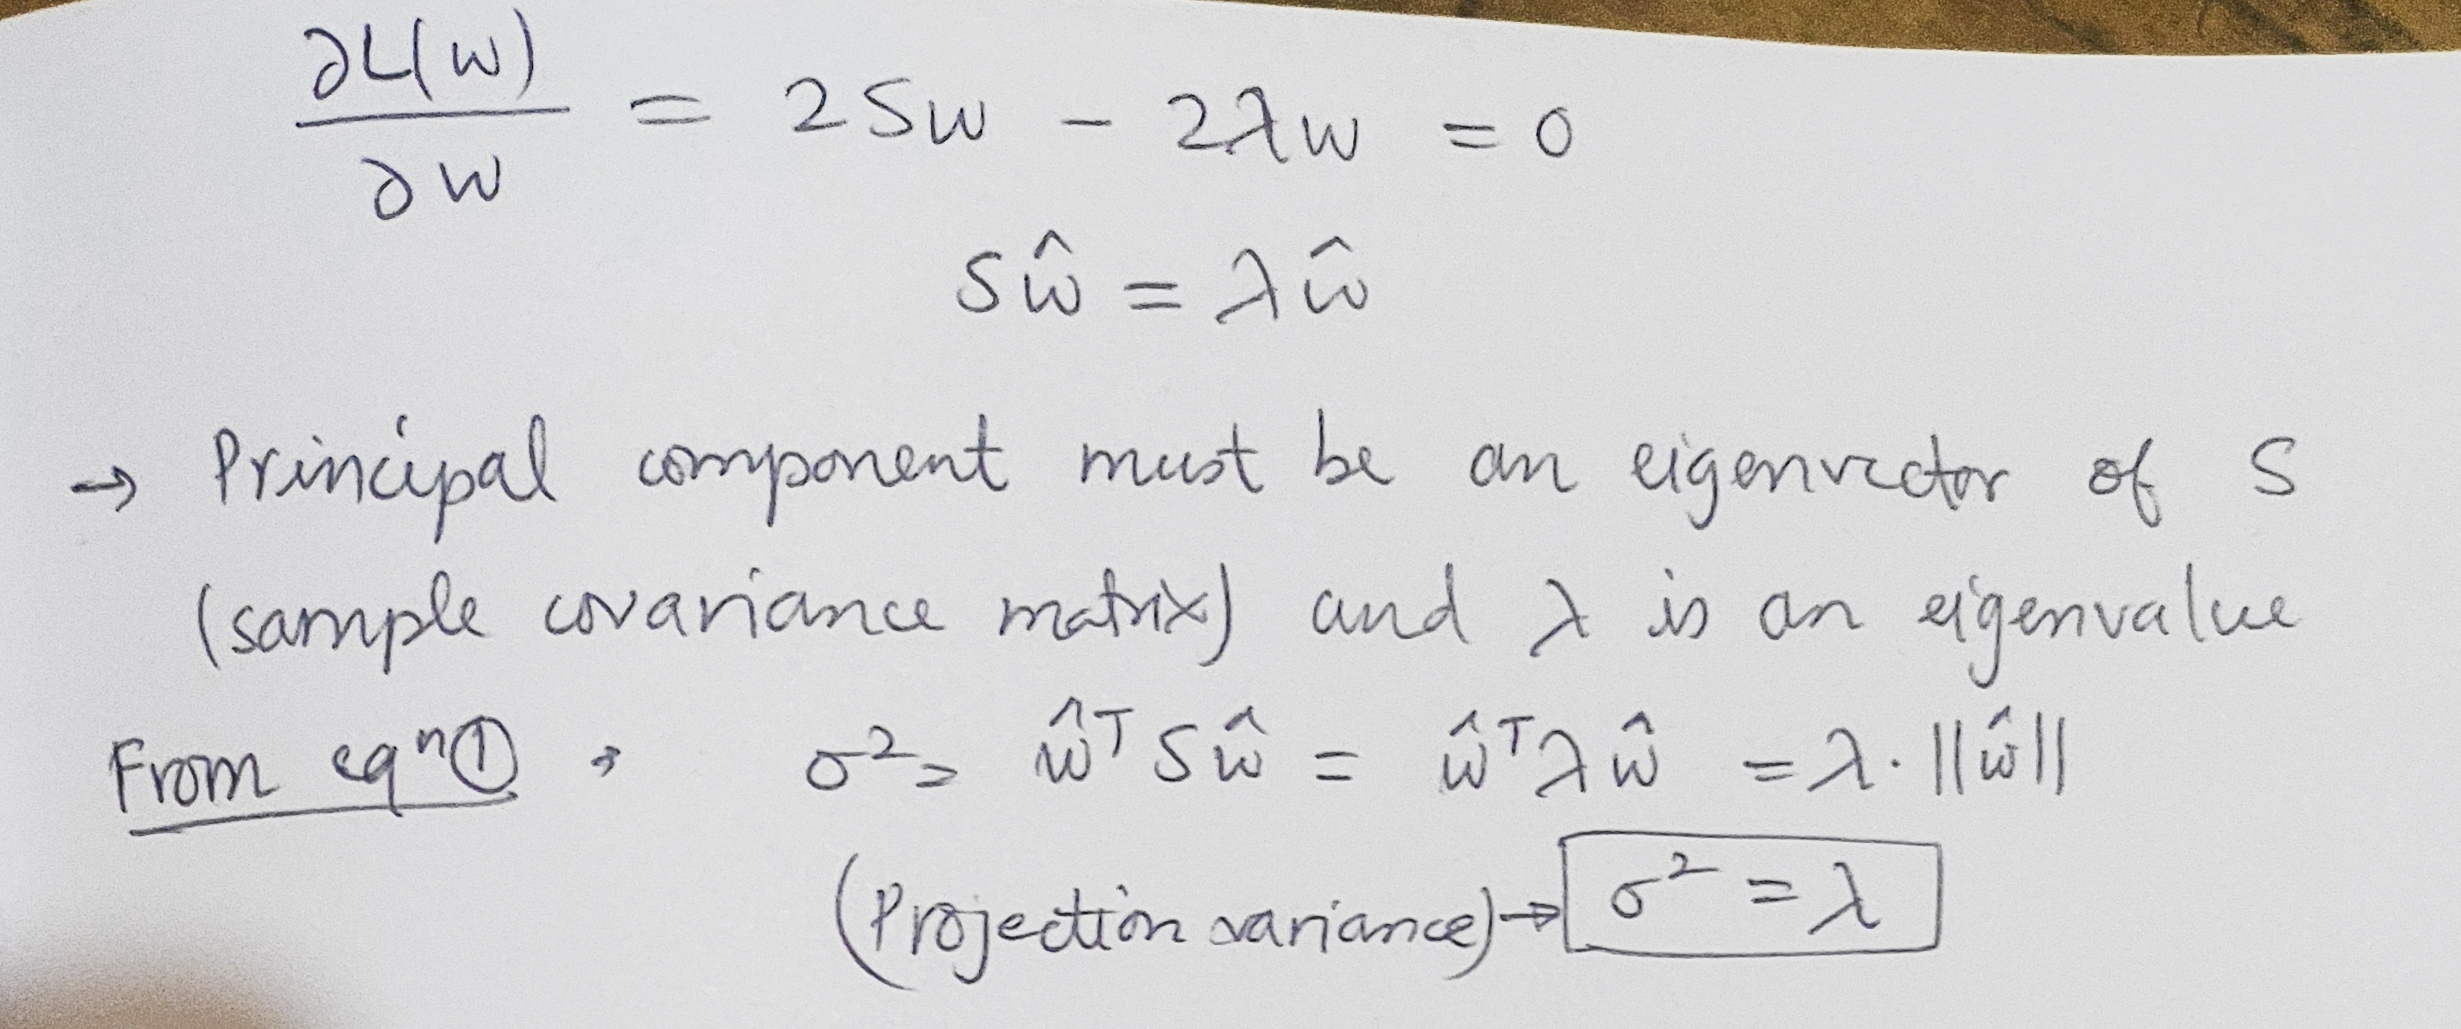 ∂L(w)/∂w = 2Sw - 2λw = 0
Sŵ = λŵ
→ Principal component must be an eigenvector of S
(sample covariance matrix) and λ is an eigenvalue
From eqⁿ① → σ² = ŵᵀSŵ = ŵᵀλŵ = λ.||ŵ||
(Projection variance) → σ² = λ